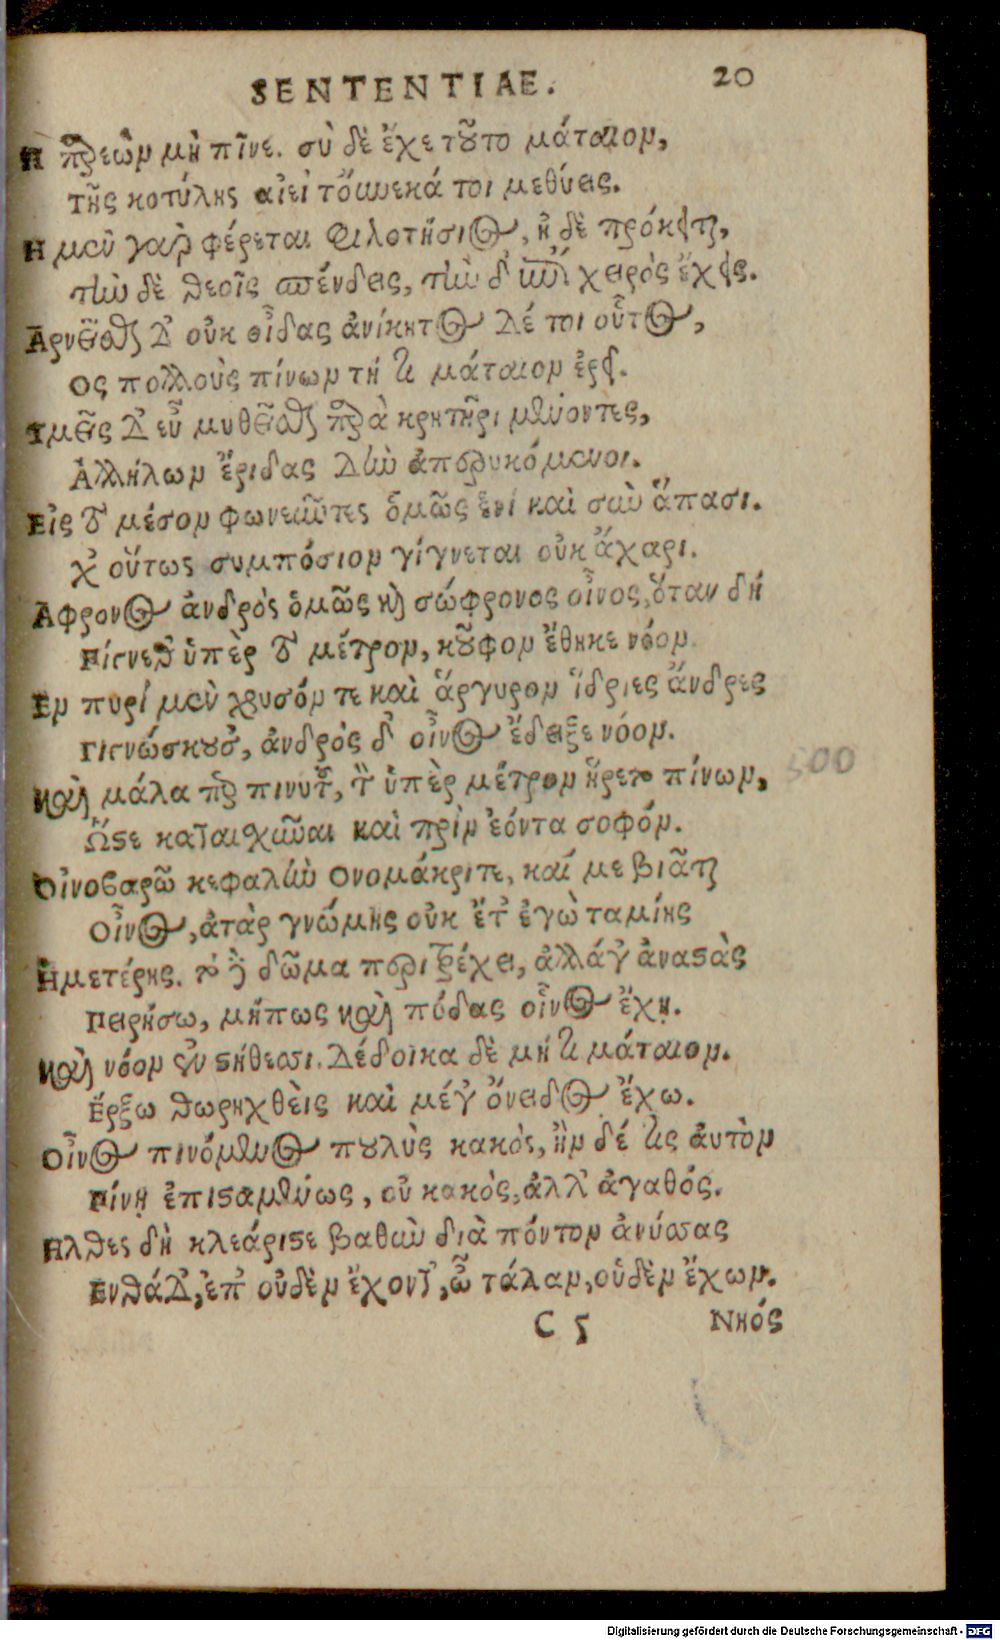 SENTENTIAE. 20
Η παρεὼν μὴ πῖνε. σὺ δὲ ἔχε τοῦτο μάταιον,
τῆς κοτύλης αἰεὶ τοὔνεκά τοι μεθύεις.
Η μὲν γὰρ φέρεται φιλοτήσιος, ἡ δὲ πρόκειται,
τὴν δὲ θεοῖς σπένδεις, τὴν δ' ἐπὶ χειρὸς ἔχεις.
Αρνεῖσθαι δ' οὐκ οἶδας ἀνίκητος δέ τοι οὗτος,
Ος πολλοὺς πίνων τή τι μάταιον ἐρεῖ.
Υμεῖς δ' εὖ μυθεῖσθαι παρὰ κρητῆρι μένοντες,
Ἀλλήλων ἔριδας δὴν ἀπερυκόμενοι.
Εἰς τὸ μέσον φωνεῦντες ὁμῶς ἑνὶ καὶ σὺν ἅπασι.
χ' οὕτως συμπόσιον γίγνεται οὐκ ἄχαρι.
Αφρονος ἀνδρὸς ὁμῶς καὶ σώφρονος οἶνος, ὅταν δή
Πίνεθ' ὑπὲρ τὸ μέτρον, κοῦφον ἔθηκε νόον
Εν πυρί μὲν χρυσόν τε καὶ ἄργυρον ἴδριες ἄνδρες
Γιγνώσκουσ', ἀνδρὸς δ' οἶνος ἔδειξε νόον.
καὶ μάλα περ πινυτοῦ, τὸν ὑπὲρ μέτρον ἤρετο πίνων,
Ὥστε καταισχῦναι καὶ πρὶν ἐόντα σοφόν.
Οἰνοβαρῶ κεφαλὴν Ονομάκριτε, καί με βιᾶται
οἶνος, ἀτὰρ γνώμης οὐκ ἔτ' ἐγὼ ταμίης
Ημετέρης. τὸ δὲ δῶμα περιτρέχει, ἀλλάγ' ἀναστὰς
Πειρήσω, μήπως καὶ πόδας οἶνος ἔχῃ.
καὶ νόον ἐν στήθεσι. Δέδοικα δὲ μή τι μάταιον.
Ἔρξω θωρηχθεὶς καὶ μέγ' ὄνειδος ἔχω.
Οἶνος πινόμενος πουλὺς κακὸς, ἢν δέ τις ἀυτὸν
Πίνῃ ἐπισταμένως, οὐ κακὸς, ἀλλ' ἀγαθός.
Ηλθες δὴ κλεάριστε βαθὺν διὰ πόντον ἀνύσσας
Ενθάδ', ἐπ' οὐδὲν ἔχοντ', ὦ τάλαν, οὐδὲν ἔχων.
C 5 Νηός
500
Digitalisierung gefördert durch die Deutsche Forschungsgemeinschaft - DFG